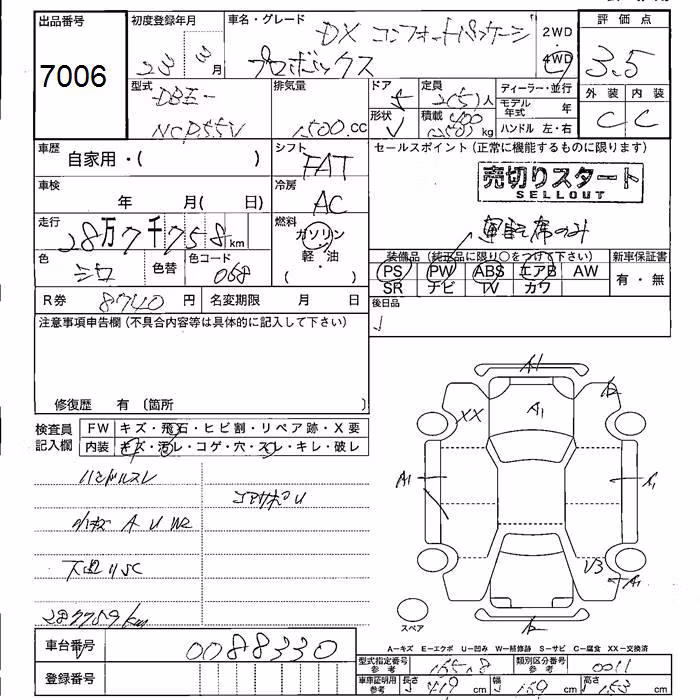 出品番号
7006
初度登録年月
23 3月
車名・グレード
DX コンフォートパッケージ
プロボックス
2WD
4WD
評価点
3.5
外装 内装
C C
型式
DBE-
NCP55V
排気量
1,500.cc
ドア
5
形状
V
定員
2(5)人
積載
400
(250)kg
ディーラー・並行
モデル年式 年
ハンドル 左・右
車歴
自家用・( )
シフト
FAT
セールスポイント(正常に機能するものに限ります)
売切りスタート
SELLOUT
運転席のみ
車検
年 月( 日)
冷房
AC
走行
28万7千758km
燃料
ガソリン
軽・油
色
シロ
色替
色コード
068
装備品(純正品に限り○をつけて下さい)
PS PW ABS エアB AW
SR ナビ TV カワ
新車保証書
有・無
R券 8740円
名変期限 月 日
後日品
注意事項申告欄(不具合内容等は具体的に記入して下さい)
修復歴 有(箇所 )
検査員
記入欄
FW キズ・飛石・ヒビ割・リペア跡・X要
内装 キズ・汚レ・コゲ・穴・スレ・キレ・破レ
ハンドルスレ
コアサポU
A U W2
下廻りSC
287759km
A1
XX
A1
スペア
A-キズ E-エクボ U-凹み W-補修跡 S-サビ C-腐食 XX-交換済
車台番号
0088330
登録番号
型式指定番号
参考
類別区分番号
0011
車庫証明用
参考
長さ 419cm
幅 169cm
高さ 153cm